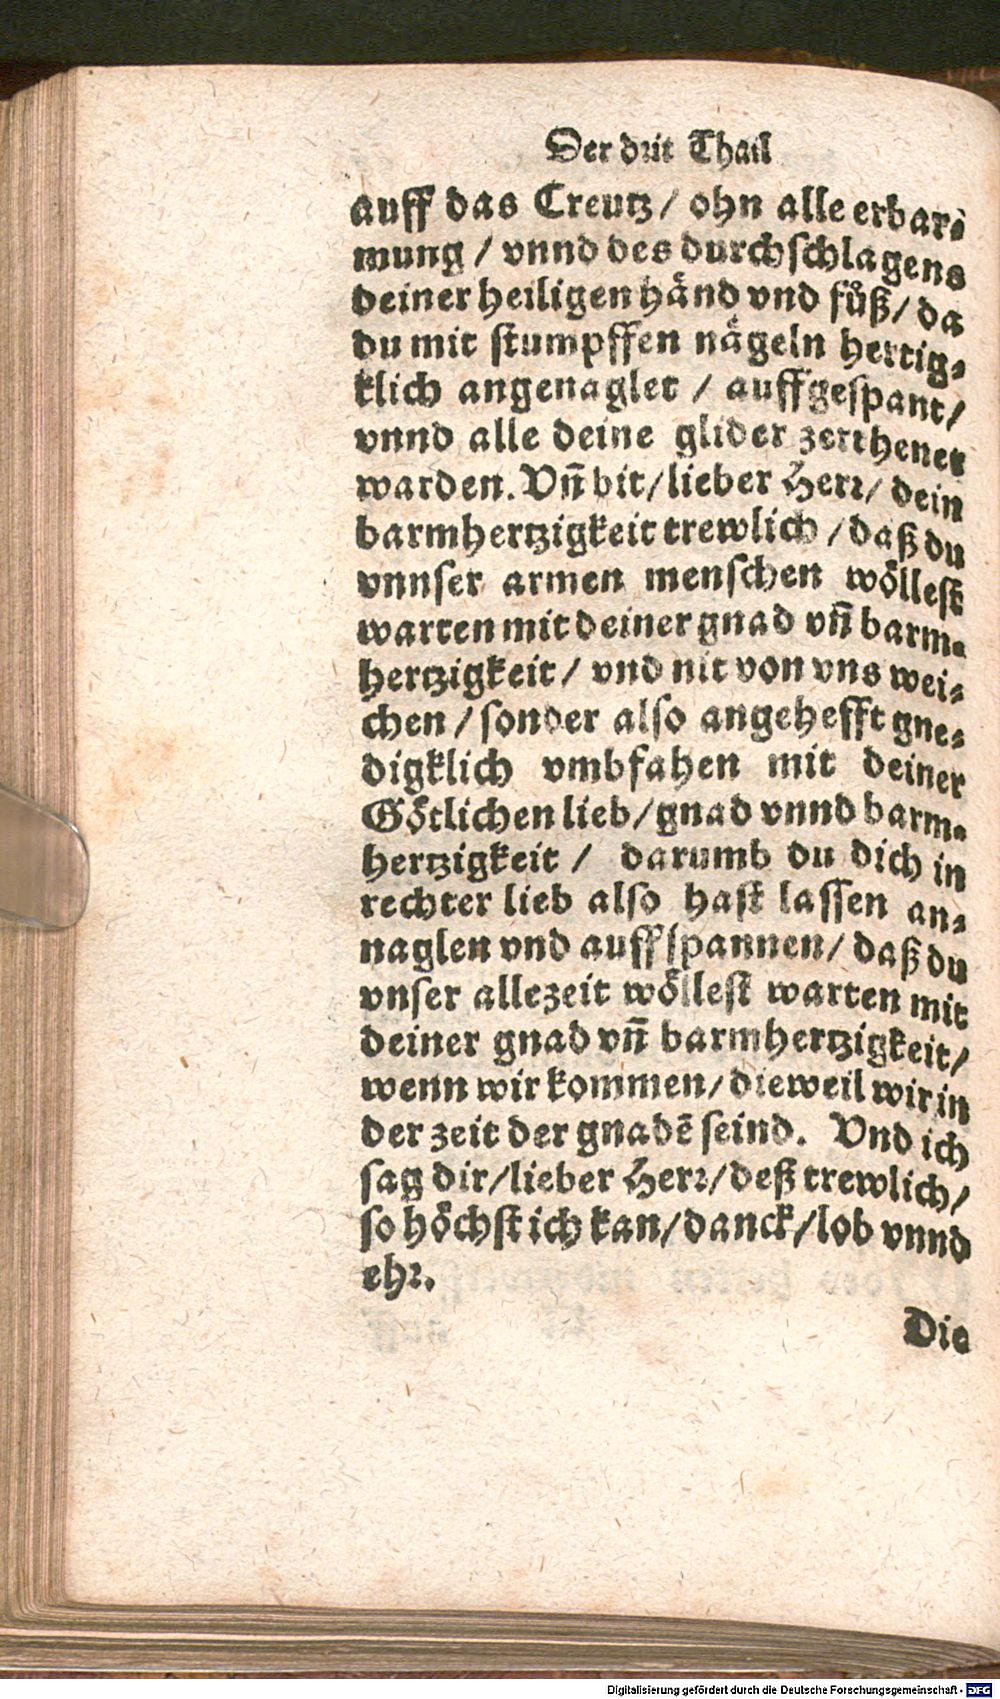 Der drit Thail
auff das Creutz / ohn alle erbar⸗
mung / vnnd des durchschlagens
deiner heiligen händ vnd fůß / da
du mit stumpffen nägeln hertig⸗
klich angenaglet / auffgespant /
vnnd alle deine glider zerthenet
warden. Vñ bit / lieber Herr / dein
barmhertzigkeit trewlich / daß du
vnnser armen menschen wöllest
warten mit deiner gnad vñ barm⸗
hertzigkeit / vnd nit von vns wei⸗
chen / sonder also angehefft gne⸗
digklich vmbfahen mit deiner
Götlichen lieb / gnad vnnd barm⸗
hertzigkeit / darumb du dich in
rechter lieb also hast lassen an⸗
naglen vnd auffspannen / daß du
vnser allezeit wöllest warten mit
deiner gnad vñ barmhertzigkeit /
wenn wir kommen / dieweil wir in
der zeit der gnadē seind. Vnd ich
sag dir / lieber Herr / deß trewlich /
so höchst ich kan / danck / lob vnnd
ehr.
Die
Digitalisierung gefördert durch die Deutsche Forschungsgemeinschaft - DFG